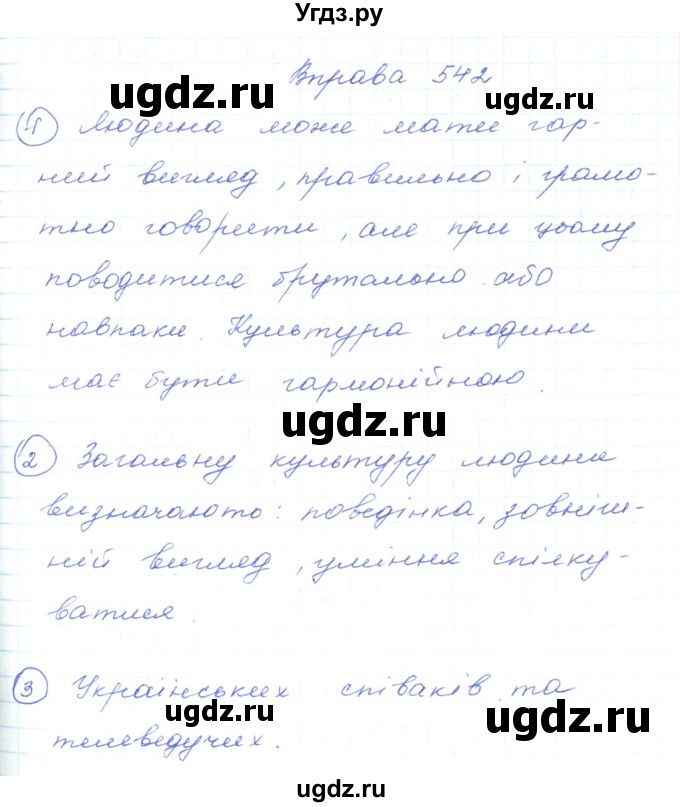 Угдз.ру
Вправа 542
ugdz.ru
ugdz.ru
1 Людина може мати гар-
ний вигляд, правильно і грамо-
тно говорити, але при цьому
поводитися брутально або
навпаки. Культура людини
має бути гармонійною.
ugdz.ru
ugdz.ru
2 Загальну культуру людини
визначають: поведінка, зовніш-
ній вигляд, уміння спілку-
ватися.
3 Українських співаків та
телеведучих.
ugdz.ru
ugdz.ru
ugdz.ru